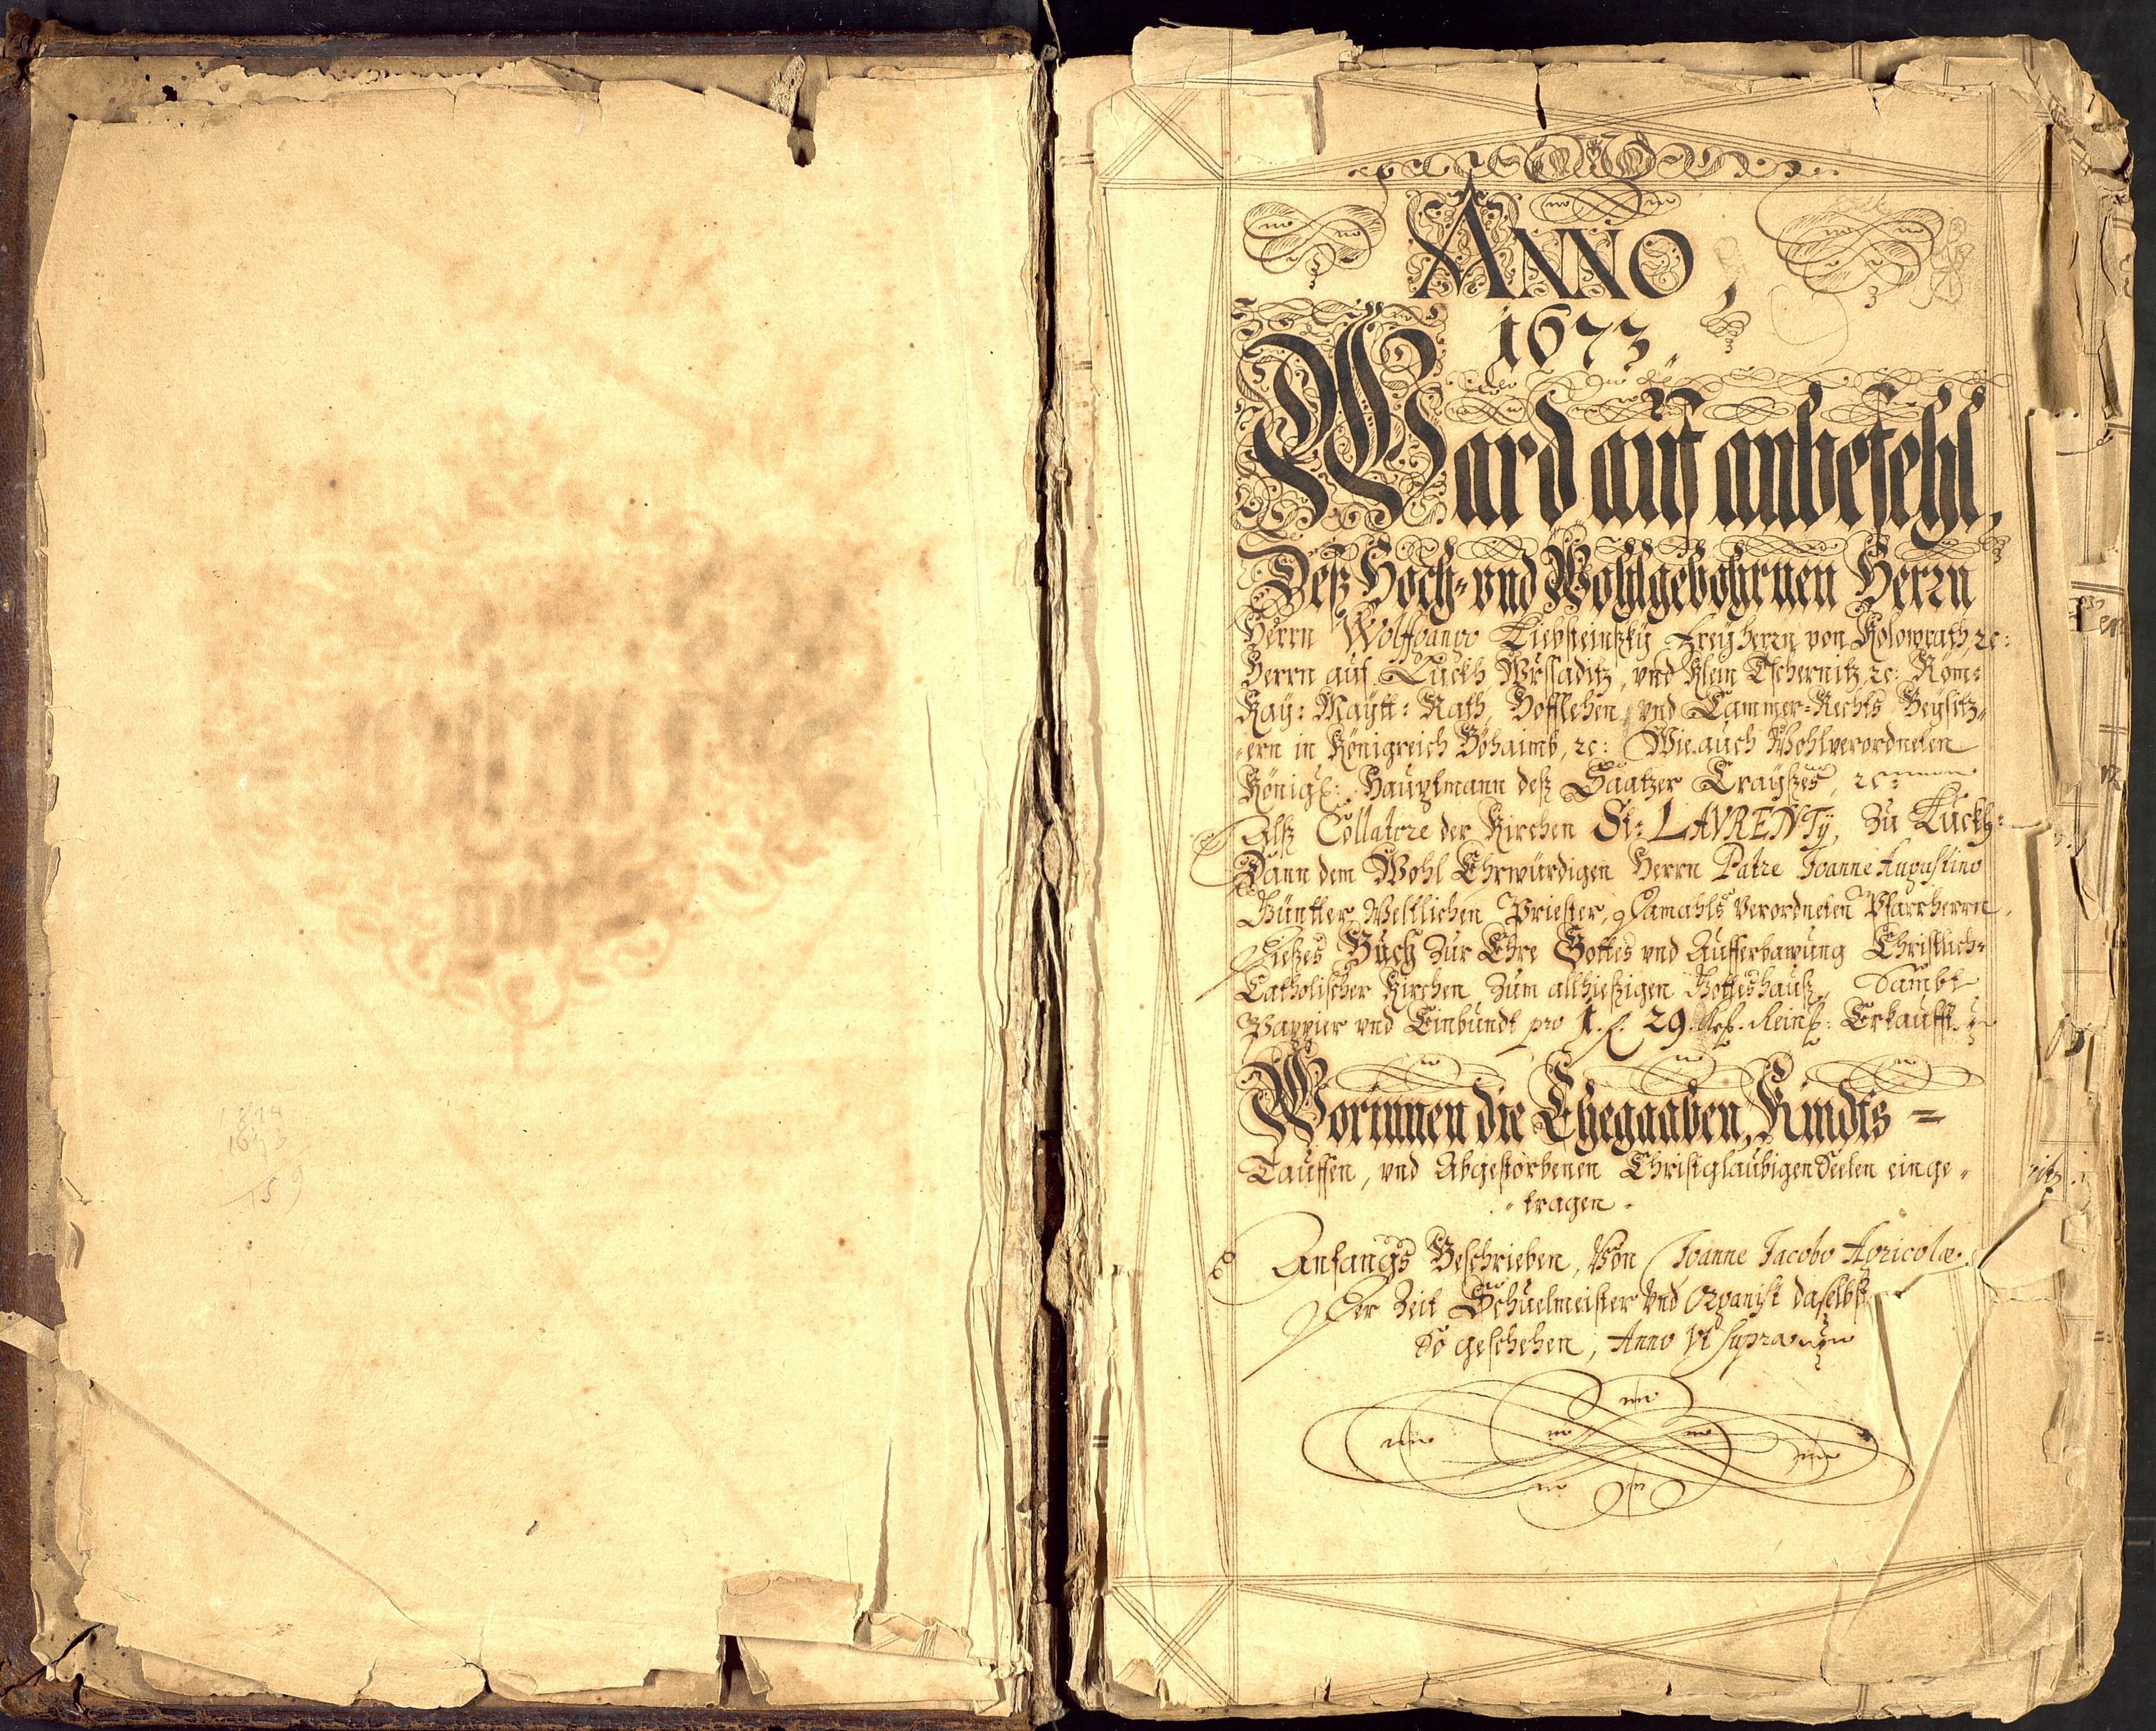 1818
1673
159
ANNO
1673
Ward auf anbefehl,
Deß Hoch- vnd Wohlgebohrnen Herrn
Herrn Wolffgango Liebsteinsky Freyherrn von Kolowrath, ꝛc:
Herrn auf Luckh, Wussaditz, vnd Klein Tschernitz, ꝛc: Röm:
Kay: Maytt: Rath, Hofflehen, vnd Cammer-Rechts Beysitz-
-ern in Königreich Böhaimb, ꝛc: Wie auch Wohlverordneten
Königl: Hauptmann deß Saatzer Crayßes, ꝛc:
Alß Collatore der Kirchen St: LAVRENTy, Zu Luckh:
Dann dem Wohl Ehrwürdigen Herrn Patre Joanne Augustino
Güntler Weltlichen Priester, Damahls Verordneten Pfarrherrn,
Dießes Buch Zur Ehre Gottes vnd Aufferbawung Christlich-
Catholischer Kirchen, Zum allhießigen Gotteshauß, Sambt
Pappier vnd Einbundt pro 1. f. 29. Krß. Reinß: Erkaufft.
Worinnen die Ehegaaben, Kindts =
Tauffen, vnd Abgestorbenen Christglaubigen Seelen einge-
-tragen.
Anfangs Beschrieben, Von Joanne Jacobo Agricolæ.
Der Zeit Schuelmeister Vnd Organist daselbst
So geschehen, Anno Vt Supra